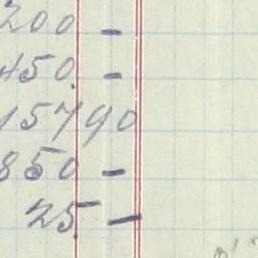 200 -
450 -
157 90
850 -
25 -